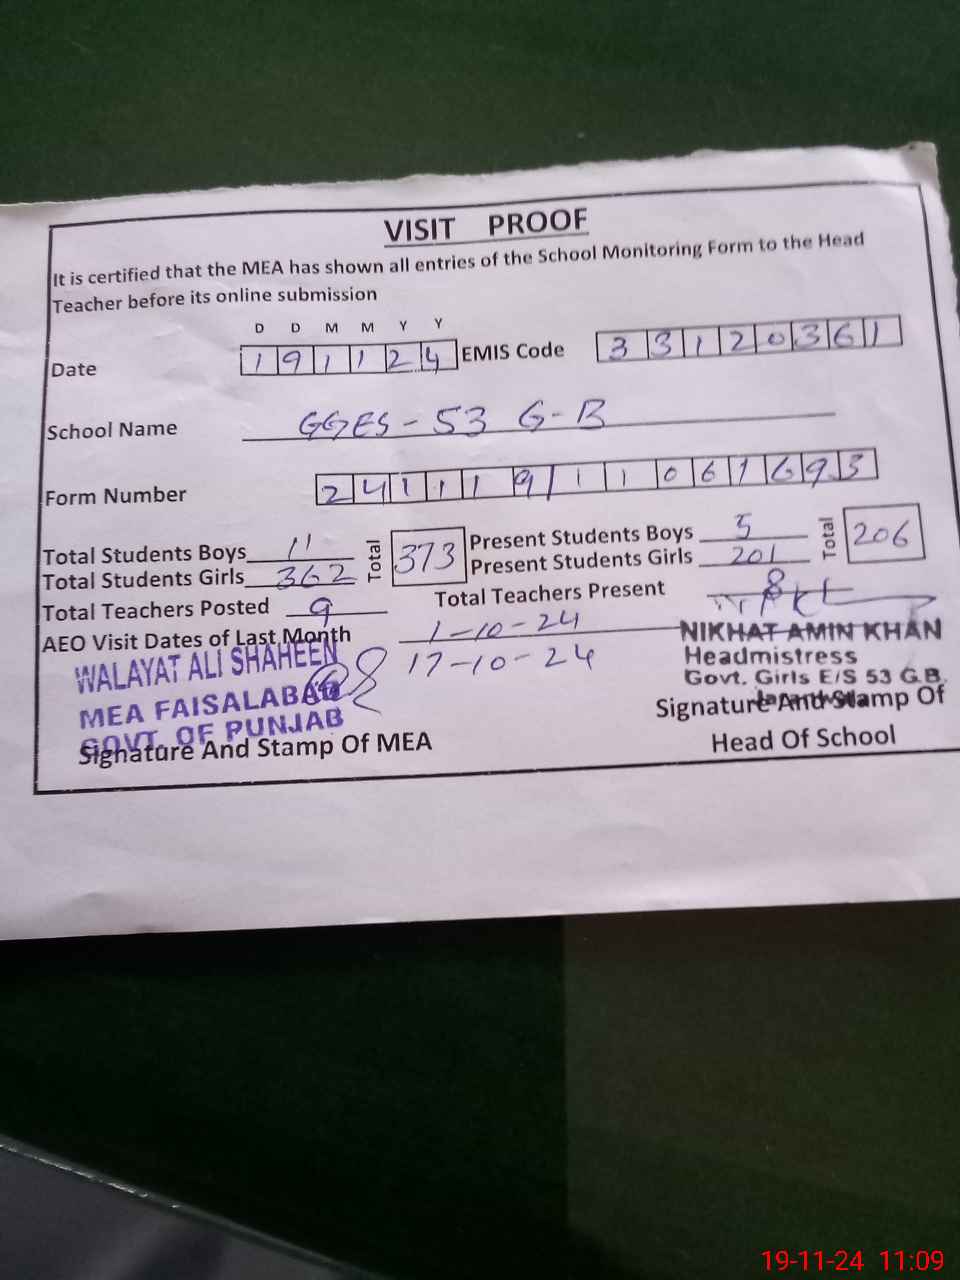 VISIT PROOF
It is certified that the MEA has shown all entries of the School Monitoring Form to the Head
Teacher before its online submission
D D M M Y Y
Date 191124 EMIS Code 33120361
School Name GGES - 53 G-B
Form Number 241119111061693
Total Students Boys 11 Total 373 Present Students Boys 5 Total 206
Total Students Girls 362 Present Students Girls 201
Total Teachers Posted 9 Total Teachers Present 8
AEO Visit Dates of Last Month 1-10-24
17-10-24
WALAYAT ALI SHAHEEN
MEA FAISALABAD
GOVT. OF PUNJAB
Signature And Stamp Of MEA
NIKHAT AMIN KHAN
Headmistress
Govt. Girls E/S 53 G.B.
Signature And Stamp Of
Head Of School
19-11-24 11:09